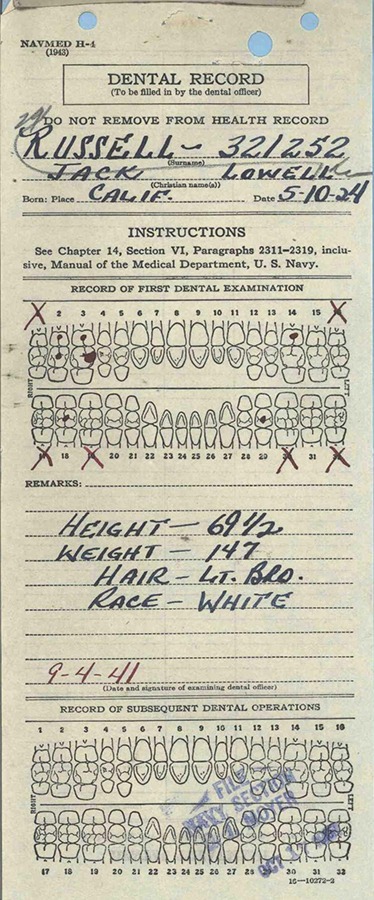 NAVMED H-4
(1943)
DENTAL RECORD
(To be filled in by the dental officer)
DO NOT REMOVE FROM HEALTH RECORD
RUSSELL - 321252
(Surname)
JACK LOWELL
(Christian name(s))
Born: Place CALIF. Date 5-10-24
INSTRUCTIONS
See Chapter 14, Section VI, Paragraphs 2311-2319, inclu-
sive, Manual of the Medical Department, U. S. Navy.
RECORD OF FIRST DENTAL EXAMINATION
2 3 4 5 6 7 8 9 10 11 12 13 14 15
RIGHT LEFT
18 20 21 22 23 24 25 26 27 28 29 31
REMARKS:
HEIGHT - 69 1/2
WEIGHT - 147
HAIR - LT. BRO.
RACE - WHITE
9-4-41
(Date and signature of examining dental officer)
RECORD OF SUBSEQUENT DENTAL OPERATIONS
1 2 3 4 5 6 7 8 9 10 11 12 13 14 15 16
RIGHT LEFT
FILE
NAVY SECTION
OCT
17 18 19 20 21 22 23 24 25 26 27 28 29 30 31 32
16-10272-2